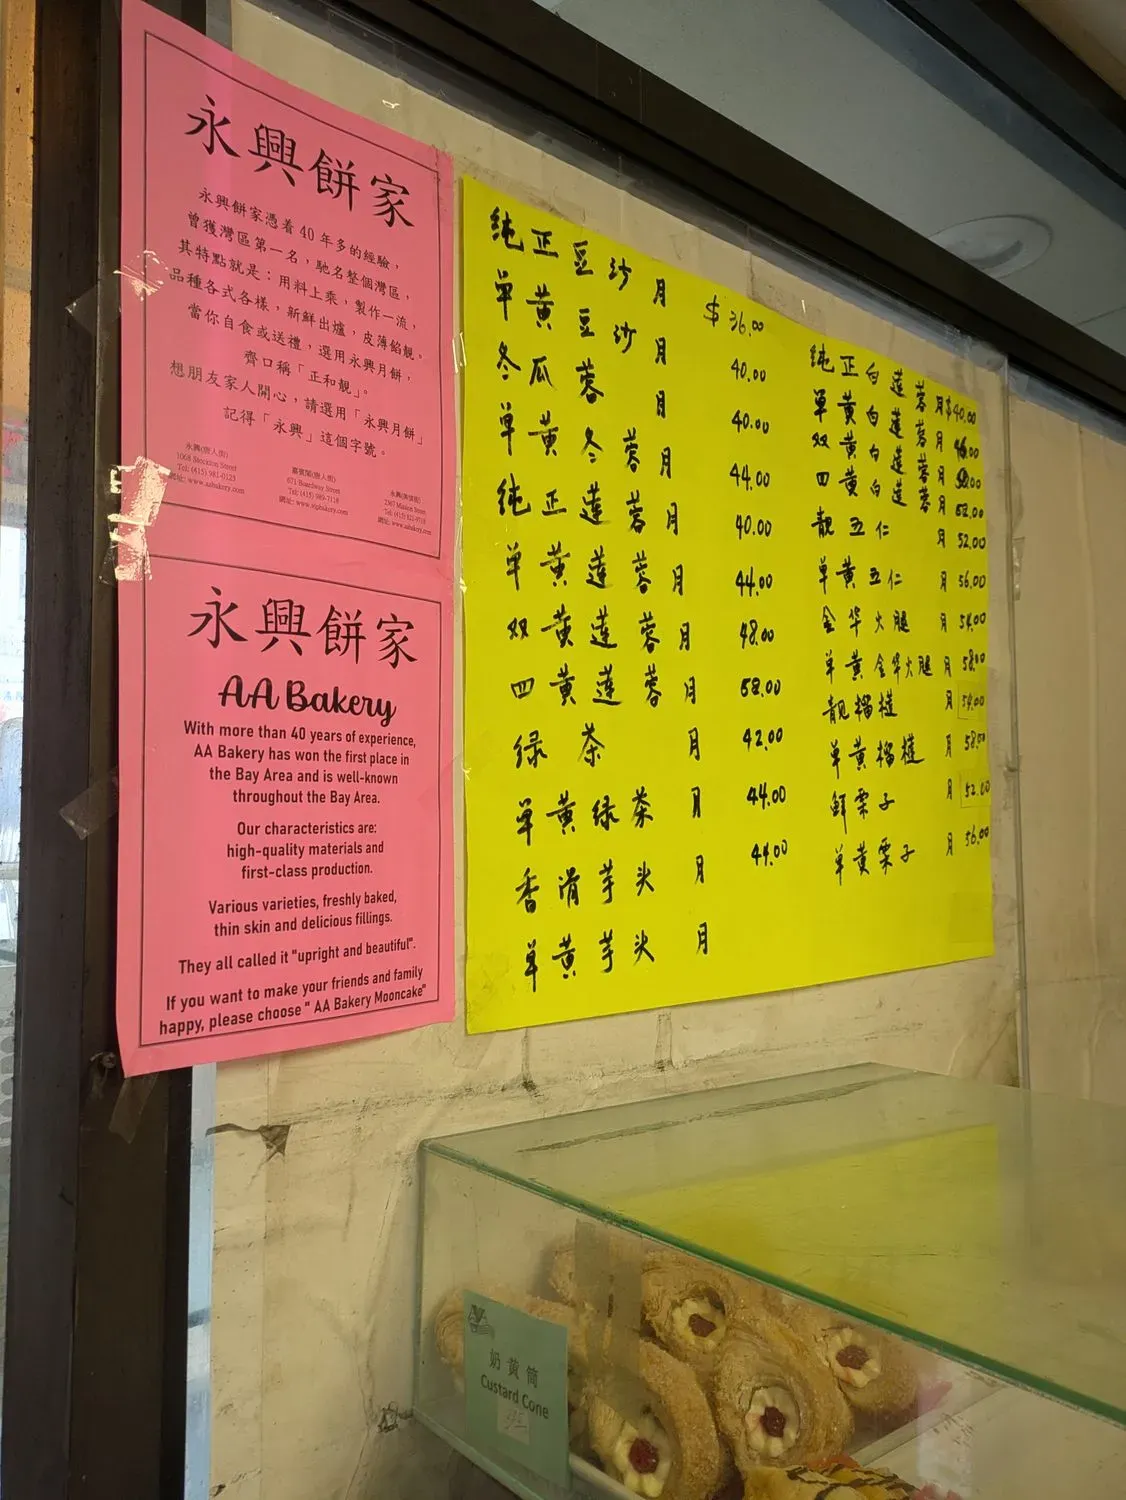 永興餅家
永興餅家憑着 40 年多的經驗，
曾獲灣區第一名，馳名整個灣區，
其特點就是：用料上乘，製作一流，
品種各式各樣，新鮮出爐，皮薄餡靚。
當你自食或送禮，選用永興月餅，
齊口稱「正和靚」。
想朋友家人開心，請選用「永興月餅」
記得「永興」這個字號。
永興(唐人街)
1068 Stockton Street
Tel: (415) 981-0123
網址: www.aabakery.com
671 Boardway Street
Tel: (415) 989-7118
2367 Mission Street
永興餅家
AA Bakery
With more than 40 years of experience,
AA Bakery has won the first place in
the Bay Area and is well-known
throughout the Bay Area.
Our characteristics are:
high-quality materials and
first-class production.
Various varieties, freshly baked,
thin skin and delicious fillings.
They all called it "upright and beautiful".
If you want to make your friends and family
happy, please choose " AA Bakery Mooncake"
純正豆沙月 $36.00
单黄豆沙月 40.00
冬瓜蓉月 40.00
单黄冬蓉月 44.00
純正蓮蓉月 40.00
单黄蓮蓉月 44.00
双黄蓮蓉月 48.00
四黄蓮蓉月 58.00
绿茶月 42.00
单黄绿茶月 44.00
香滑芋头月 44.00
单黄芋头月
純正白蓮蓉月 $40.00
单黄白蓮蓉月
双黄白蓮蓉月
四黄白蓮蓉月
靚五仁月 52.00
单黄五仁月 56.00
金华火腿月 54.00
单黄金华火腿月 58.00
靚榴槤月 54.00
单黄榴槤月 58.00
鮮栗子月 52.00
单黄栗子月 56.00
奶黄筒
Custard Cone